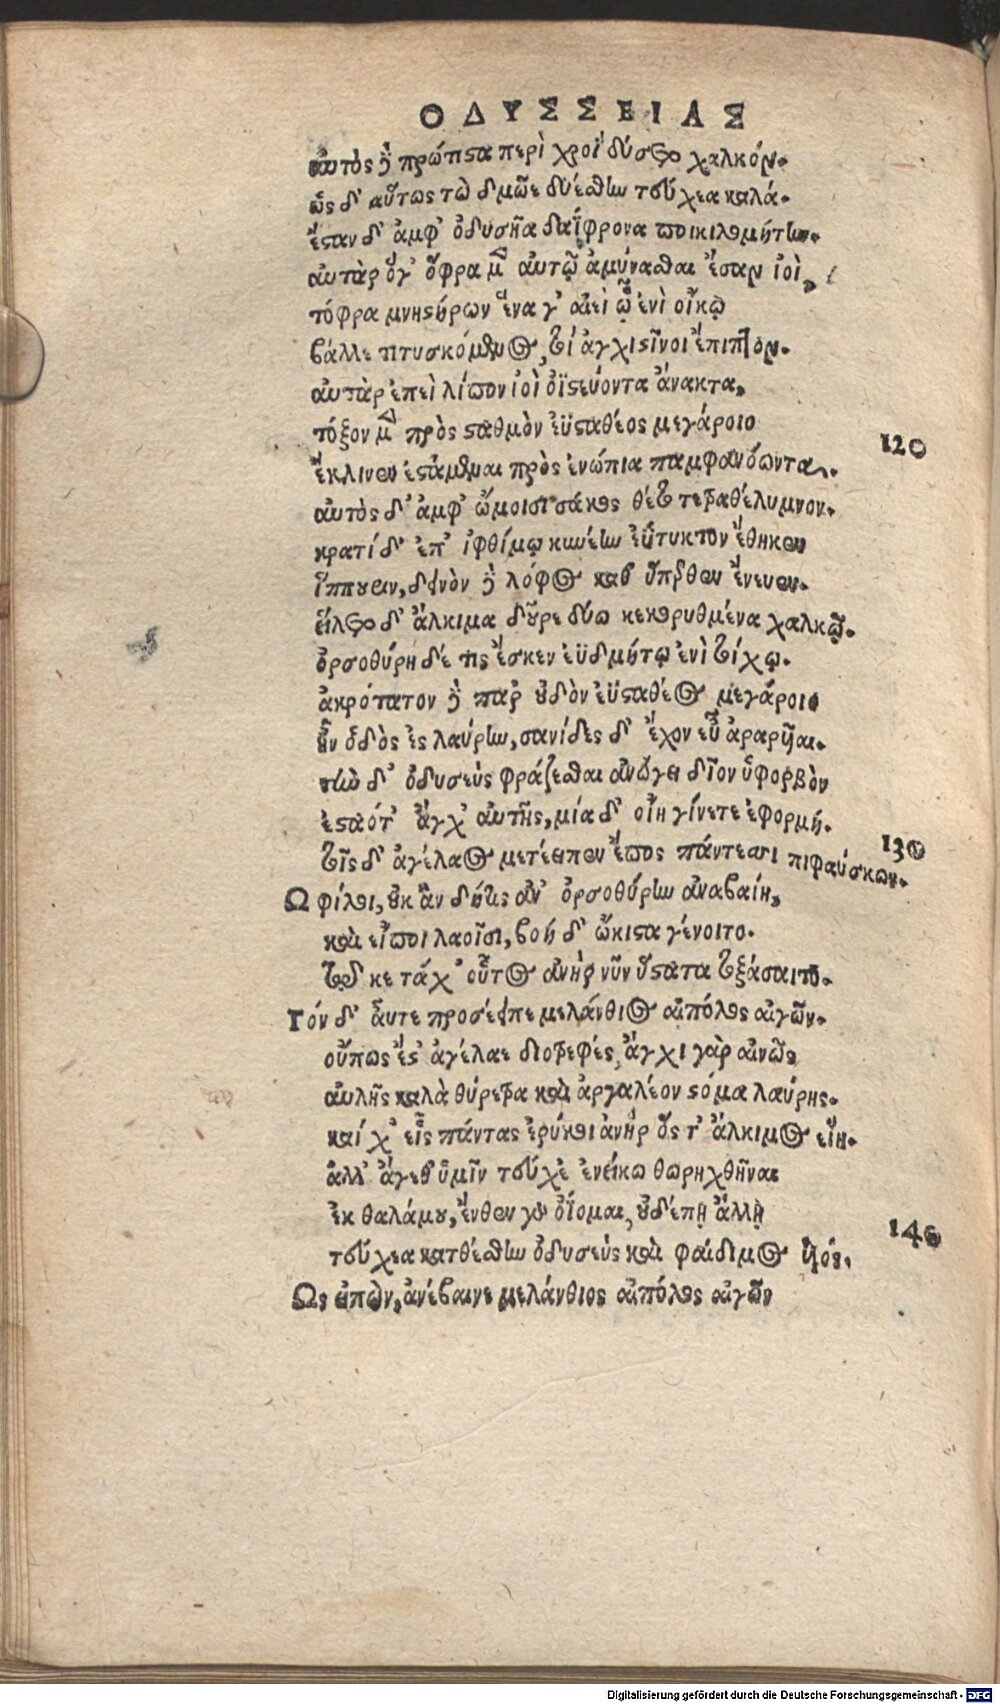 ΟΔΥΣΣΕΙΑΣ
αὐτὸς ἢ πρώτιστα περὶ χροῒ δύσετο χαλκόν.
ὣς δ' αὔτως τὼ δμῶε δυέσθην τεύχεα καλά.
ἔσταν δ' ἀμφ' ὀδυσῆα δαΐφρονα ποικιλομήτην.
αὐτὰρ ὅγ' ὄφρα μὲν αὐτῷ ἀμύνασθαι ἔσαν ἰοὶ,
τόφρα μνηστήρων ἕνα γ' αἰεὶ ᾧ ἐνὶ οἴκῳ
βάλλε τιτυσκόμενος, τοὶ ἀγχιστῖνοι ἔπιπτον.
αὐτὰρ ἐπεὶ λίπον ἰοὶ ὀϊστεύοντα ἄνακτα,
τόξον μὲν πρὸς σταθμὸν ἐϋσταθέος μεγάροιο
120
ἔκλινεν ἑστάμεναι πρὸς ἐνώπια παμφανόωντα.
αὐτὸς δ' ἀμφ' ὤμοισι σάκος θέτο τετραθέλυμνον.
κρατὶ δ' ἐπ' ἰφθίμῳ κυνέην εὔτυκτον ἔθηκεν
ἵππουριν, δεινὸν δὲ λόφος καθύπερθεν ἔνευεν.
εἵλετο δ' ἄλκιμα δοῦρε δύο κεκορυθμένα χαλκῷ.
ὀρσοθύρη δέ τις ἔσκεν ἐϋδμήτῳ ἐνὶ τοίχῳ.
ἀκρότατον δὲ παρ' οὐδὸν ἐϋσταθέος μεγάροιο
ἦν ὁδὸς ἐς λαύρην, σανίδες δ' ἔχον εὖ ἀραρῦιαι.
τὴν δ' ὀδυσεὺς φράζεσθαι ἀνώγει δῖον ὑφορβὸν
ἑσταότ' ἄγχ' αὐτῆς, μία δ' οἴη γίνετε ἐφορμή.
130
τοῖς δ' ἀγέλαος μετέειπεν ἔπος πάντεσσι πιφαύσκων.
Ω φίλοι, οὐκ ἂν δή τις ἀν' ὀρσοθύρην ἀναβαίη,
καὶ εἴποι λαοῖσι, βοὴ δ' ὤκιστα γένοιτο.
τῷ κε τάχ' οὗτος ἀνὴρ νῦν ὕστατα τοξάσαιτο.
Τόν δ' αὖτε προσέειπε μελάνθιος αἰπόλος αἰγῶν.
οὔπως ἔστ' ἀγέλαε διοτρεφές, ἄγχι γὰρ αἰνῶς
αὐλῆς καλὰ θύρετρα καὶ ἀργαλέον στόμα λαύρης.
καί χ' εἷς πάντας ἐρύκοι ἀνὴρ ὅς τ' ἄλκιμος εἴη.
ἀλλ' ἄγεθ' ὑμῖν τεύχε' ἐνείκω θωρηχθῆναι
ἐκ θαλάμου, ἔνθεν γὰρ ὀΐομαι, οὐδέπῃ ἄλλῃ
140
τεύχεα κατθέσθην ὀδυσεὺς καὶ φαίδιμος υἱός.
Ως εἰπὼν, ἀνέβαινε μελάνθιος αἰπόλος αἰγῶν
Digitalisierung gefördert durch die Deutsche Forschungsgemeinschaft - DFG